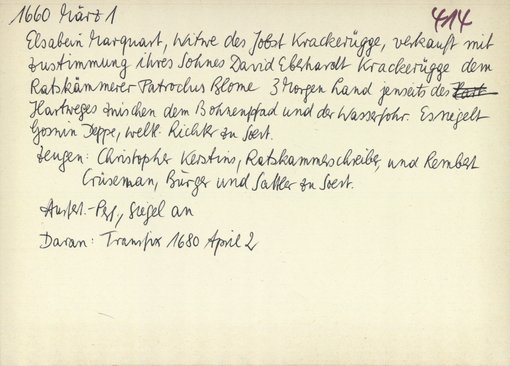 1660 März 1 414
Elsabein Marquart, Witwe des Jobst Krackerügge, verkauft mit
Zustimmung ihres Sohnes David Eberhardt Krackerügge dem
Ratskämmerer Patroclus Blome 3 Morgen Land jenseits des Hart
Hartweges zwischen dem Bohnenpfad und der Wasserfohr. Es siegelt
Goswin Jeppe, weltl. Richter zu Soest.
Zeugen: Christopher Kerstins, Ratskammerschreiber, und Rembert
Crüseman, Bürger und Sattler zu Soest.
Ausf.-Perg., Siegel an
Daran: Transfix 1680 April 2